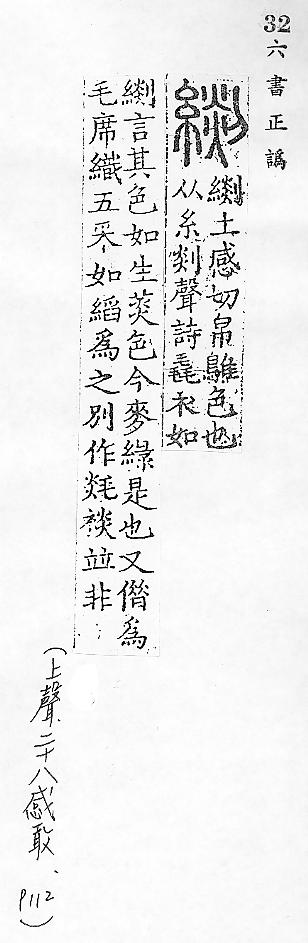 32
六書正譌
繝土感切帛鵻色也
从糸剡聲詩毳衣如
繝言其色如生菼色今麥綠是也又僭為
毛席織五采如縚為之別作毯裧並非
(上聲二十八感敢、P112)